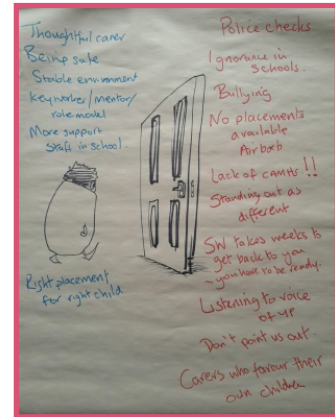 Thoughtful carer
Being safe
Stable environment
Keyworker/mentor/
role model
More support
staff in school.
Right placement
for right child
Police checks
Ignorance in
schools.
Bullying
No placements
available
Airbnb
Lack of CAMHS !!
Standing out as
different
SW takes weeks to
get back to you
- you have to be ready.
Listening to voice
of YP
Don't point us out.
Carers who favour their
own children